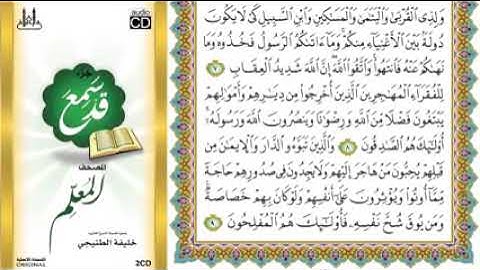 audio
CD
جزء
قد سمع
المصحف
المعلم
خليفة الطنيجي
ORIGINAL
2CD
وَلِذِى ٱلْقُرْبَىٰ وَٱلْيَتَٰمَىٰ وَٱلْمَسَٰكِينِ وَٱبْنِ ٱلسَّبِيلِ كَىْ لَا يَكُونَ
دُولَةًۢ بَيْنَ ٱلْأَغْنِيَآءِ مِنكُمْ ۚ وَمَآ ءَاتَىٰكُمُ ٱلرَّسُولُ فَخُذُوهُ وَمَا
نَهَىٰكُمْ عَنْهُ فَٱنتَهُوا۟ ۚ وَٱتَّقُوا۟ ٱللَّهَ ۖ إِنَّ ٱللَّهَ شَدِيدُ ٱلْعِقَابِ ٧
لِلْفُقَرَآءِ ٱلْمُهَٰجِرِينَ ٱلَّذِينَ أُخْرِجُوا۟ مِن دِيَٰرِهِمْ وَأَمْوَٰلِهِمْ
يَبْتَغُونَ فَضْلًا مِّنَ ٱللَّهِ وَرِضْوَٰنًا وَيَنصُرُونَ ٱللَّهَ وَرَسُولَهُۥٓ ۚ
أُو۟لَٰٓئِكَ هُمُ ٱلصَّٰدِقُونَ ٨ وَٱلَّذِينَ تَبَوَّءُو ٱلدَّارَ وَٱلْإِيمَٰنَ مِن
قَبْلِهِمْ يُحِبُّونَ مَنْ هَاجَرَ إِلَيْهِمْ وَلَا يَجِدُونَ فِى صُدُورِهِمْ حَاجَةً
مِّمَّآ أُوتُوا۟ وَيُؤْثِرُونَ عَلَىٰٓ أَنفُسِهِمْ وَلَوْ كَانَ بِهِمْ خَصَاصَةٌ ۚ
وَمَن يُوقَ شُحَّ نَفْسِهِۦ فَأُو۟لَٰٓئِكَ هُمُ ٱلْمُفْلِحُونَ ٩